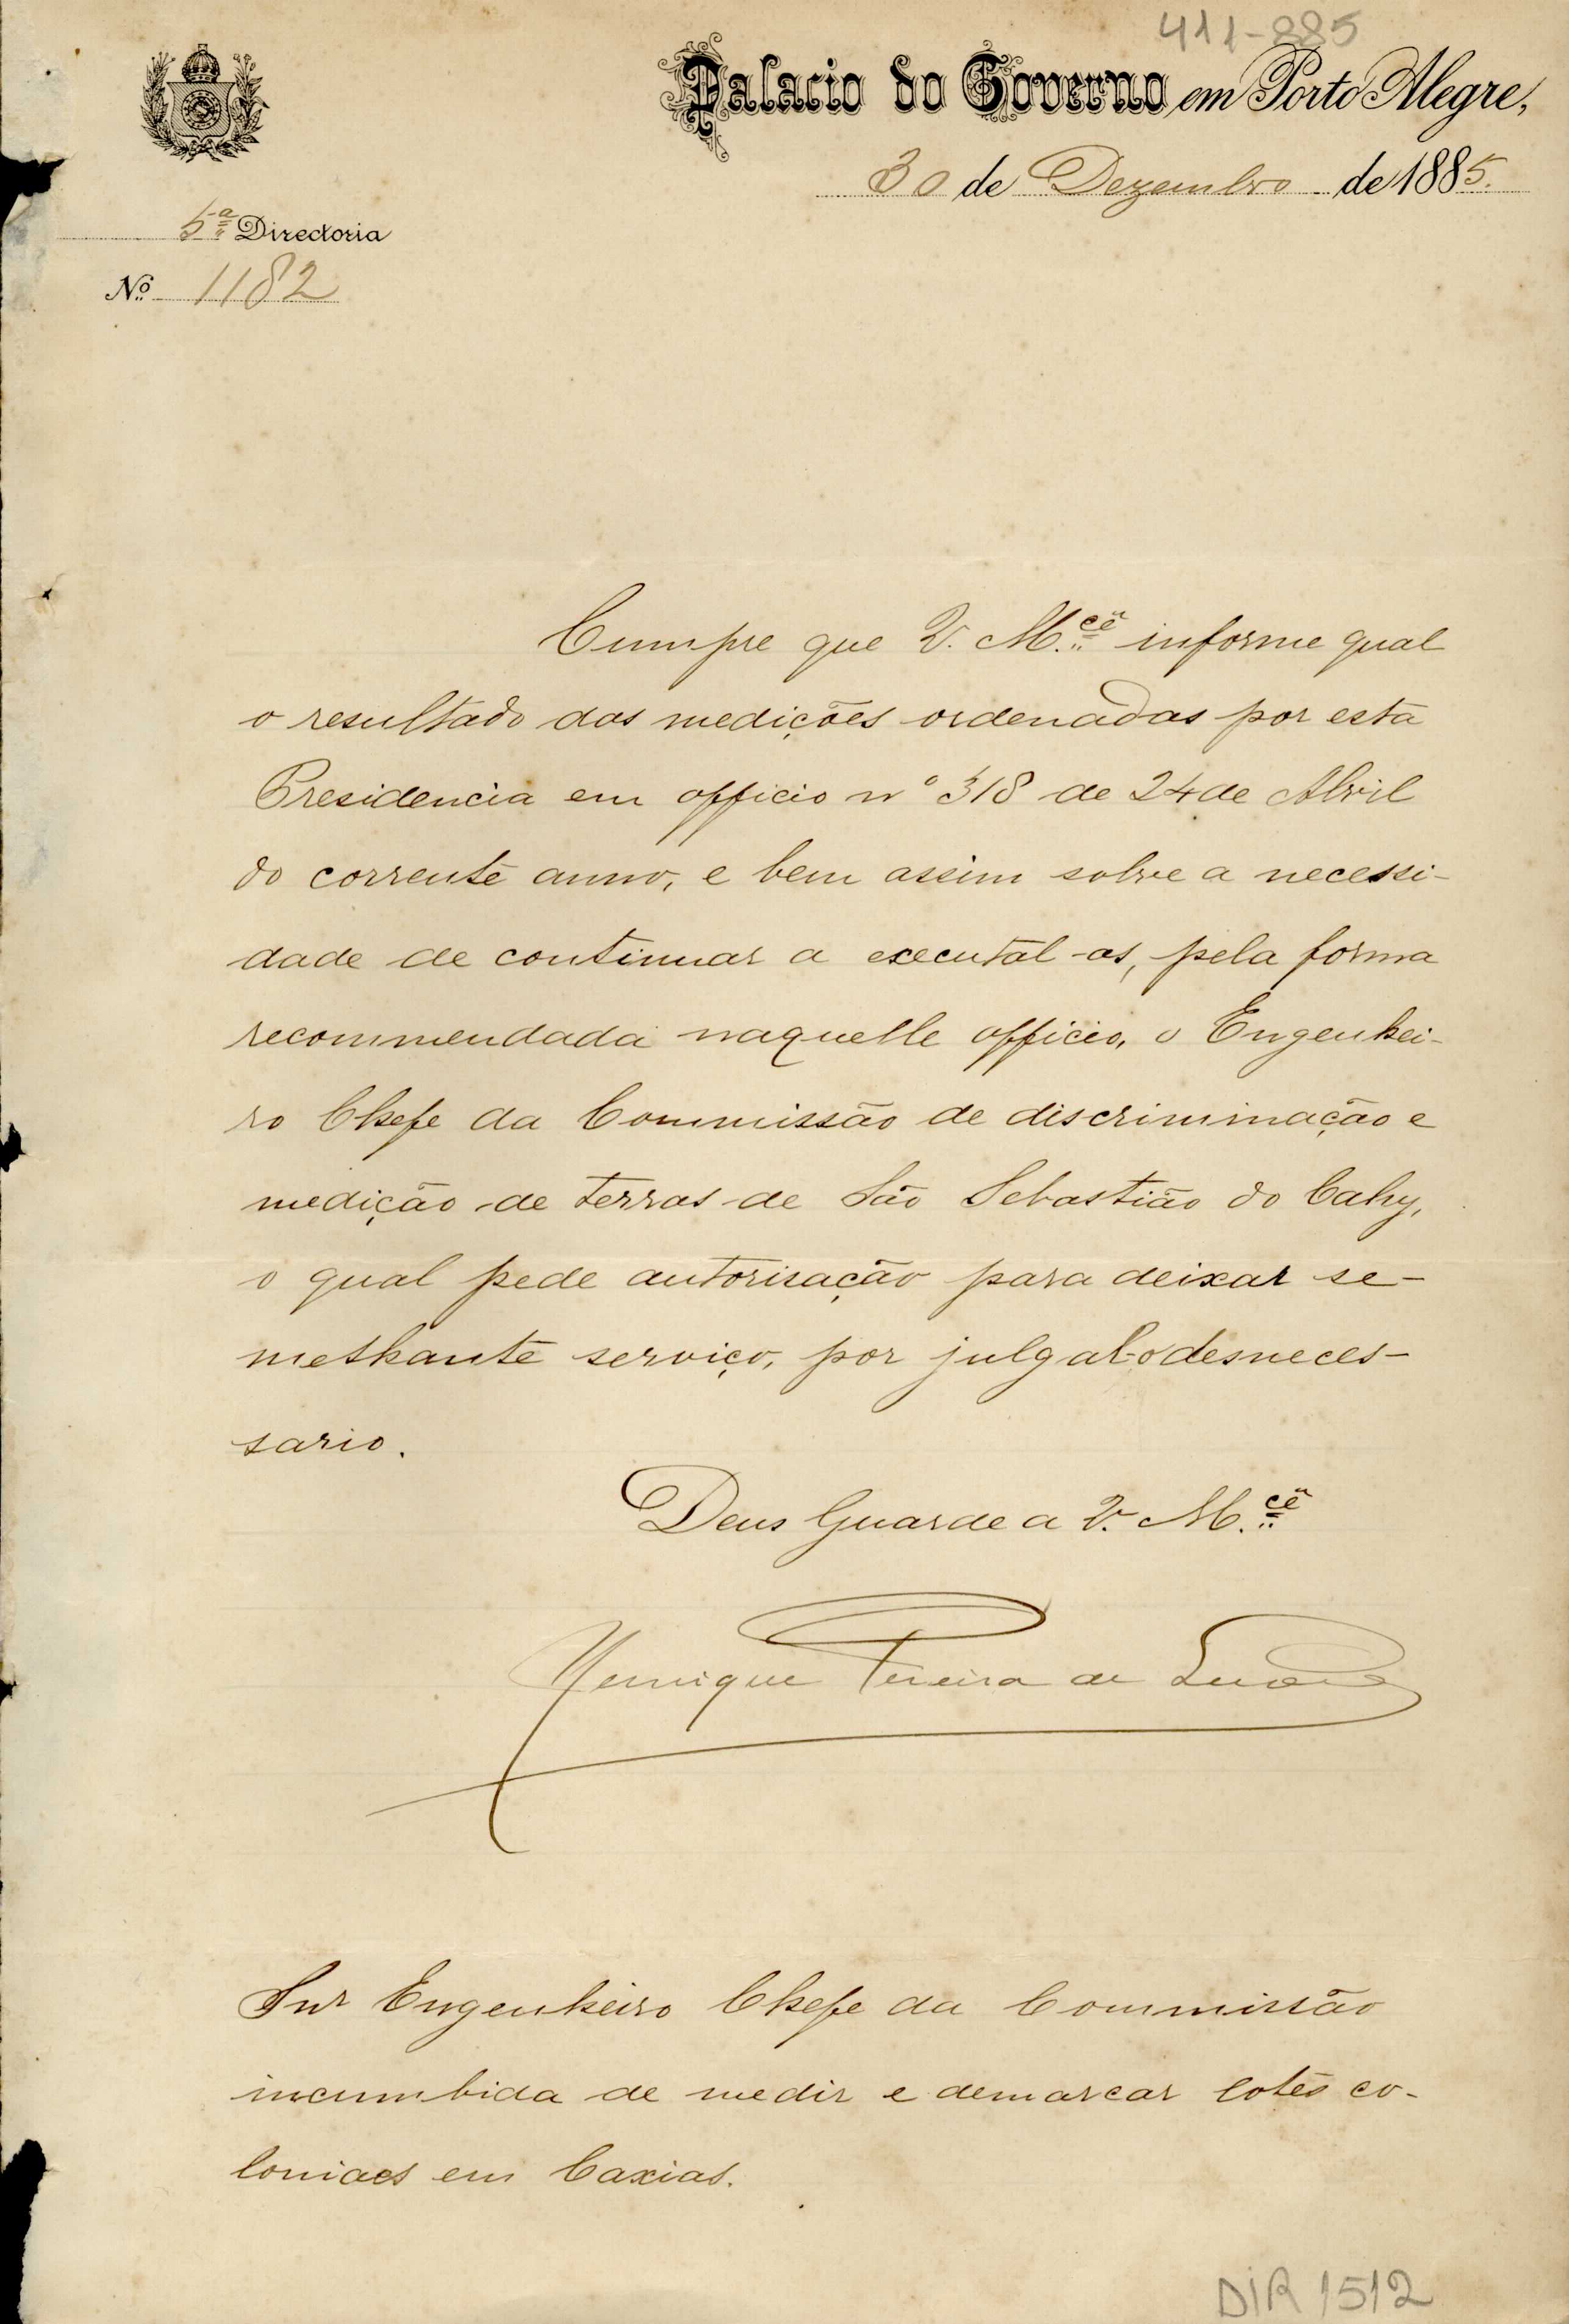 411-885
Palacio do Governo em Porto Alegre,
30 de Dezembro de 1885.
5ª Directoria
Nº 1182
Cumpre que V. M.cê informe qual
o resultado das medições ordenadas por esta
Presidencia em officio nº 318 de 24 de Abril
do corrente anno, e bem assim sobre a necessi-
dade de continuar a executal-as, pela forma
recommendada naquelle officio, o Engenhei-
ro Chefe da Commissão de discriminação e
medição de terras de São Sebastião do Cahy,
o qual pede autorisação para deixar se-
melhante serviço, por julgal-o desneces-
sario.
Deus Guarde a V. M.cê
Henrique Pereira de Lucena
Snr Engenheiro Chefe da Commissão
incumbida de medir e demarcar lotes co-
loniaes em Caxias.
DIR 1512